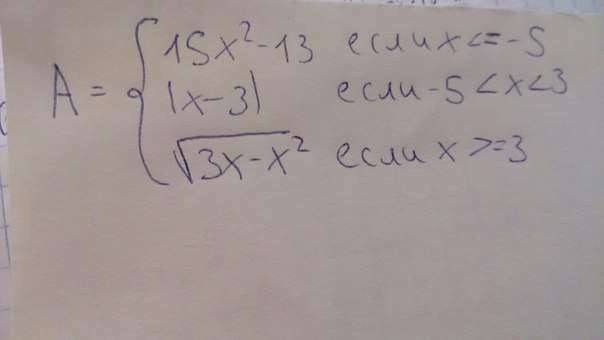 A = { 15x²-13 если x<=-5
|x-3| если -5<x<3
√3x-x² если x>=3